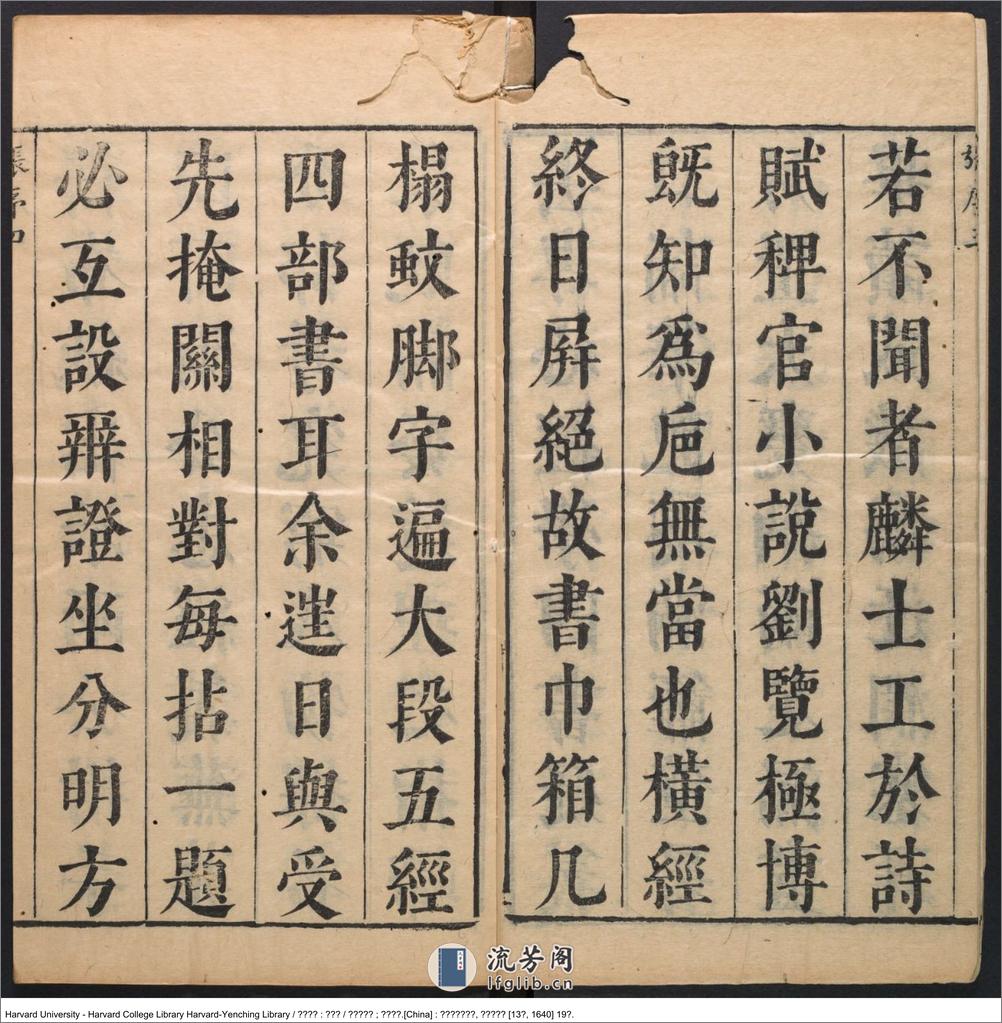 若不聞者麟士工於詩
賦稗官小說劉覽極博
旣知爲巵無當也橫經
終日屛絕故書巾箱几
榻蚊脚字遍大段五經
四部書耳余遳日與受
先掩關相對每拈一題
必互設辨證坐分明方
張序四
流芳阁
lfglib.cn
Harvard University - Harvard College Library Harvard-Yenching Library / ???? : ??? / ????? ; ????.[China] : ???????, ????? [13?, 1640] 19?.